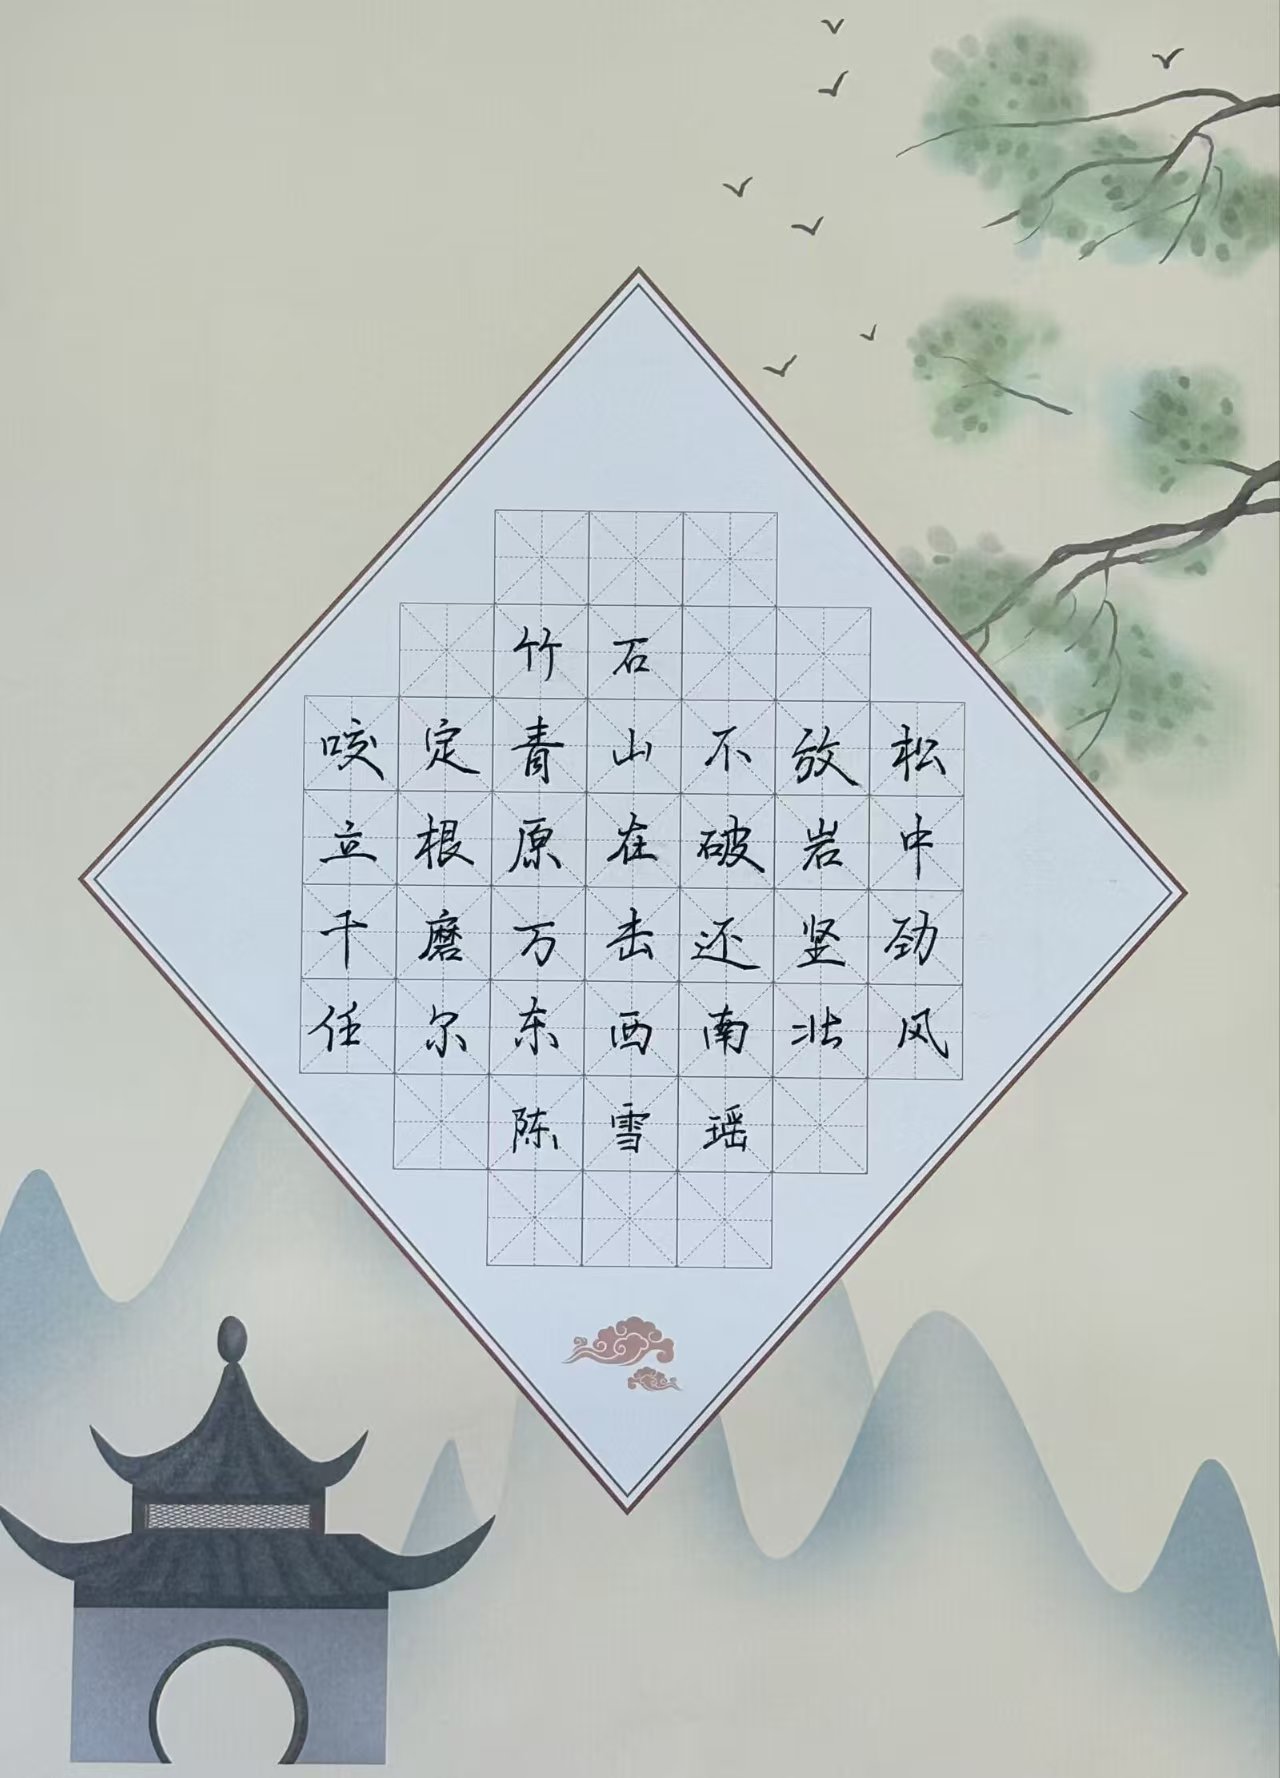 竹石
咬定青山不放松
立根原在破岩中
千磨万击还坚劲
任尔东西南北风
陈雪瑶